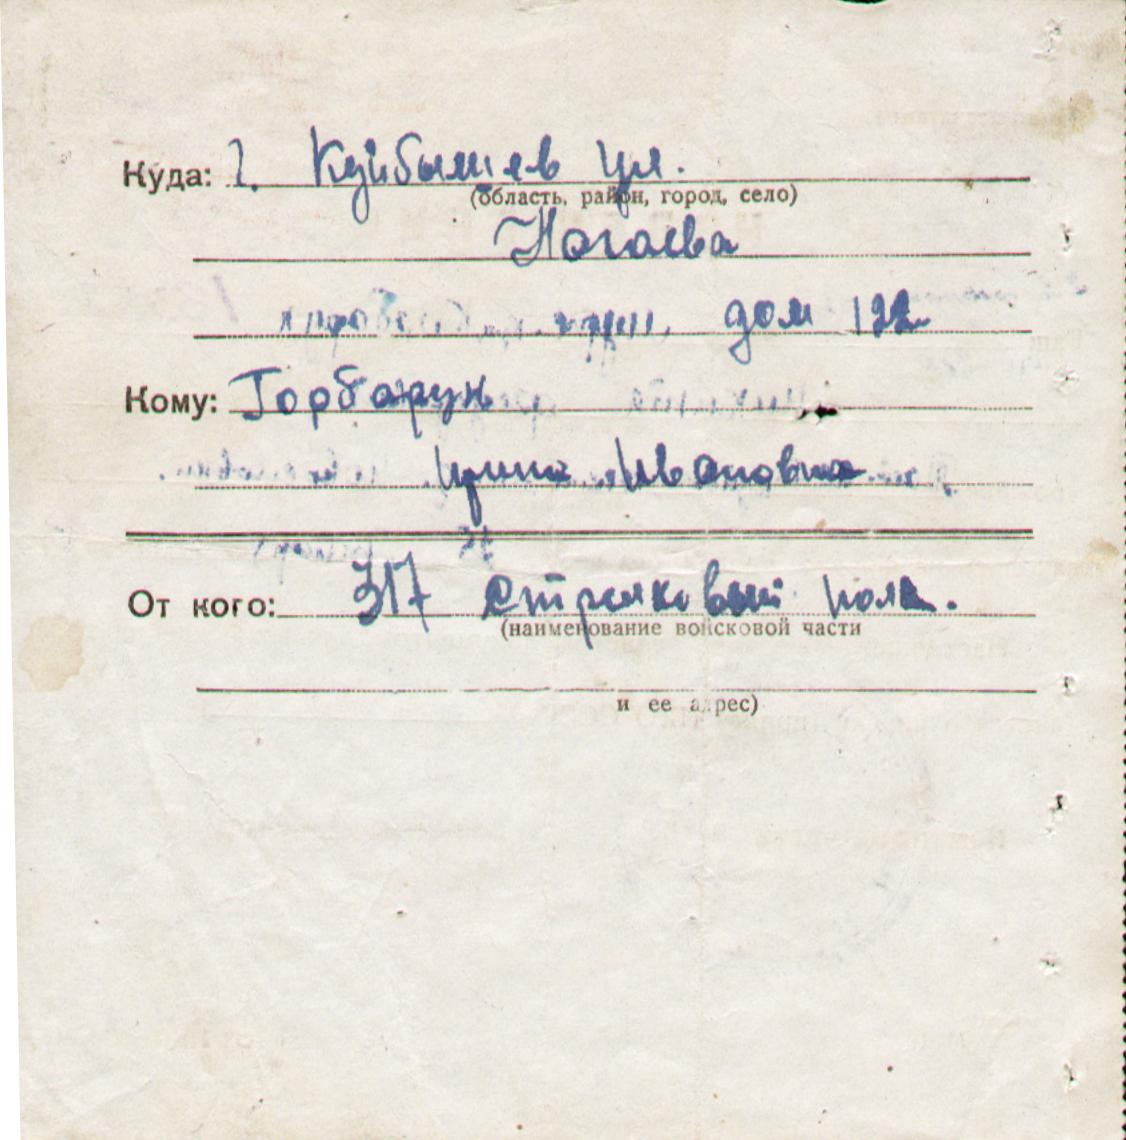 Куда: г. Куйбышев ул.
(область, район, город, село)
Ногаева
дом 122
Кому: Горбарук
Ирине Ивановна
От кого: 317 Стрелковый полк.
(наименование войсковой части
и ее адрес)